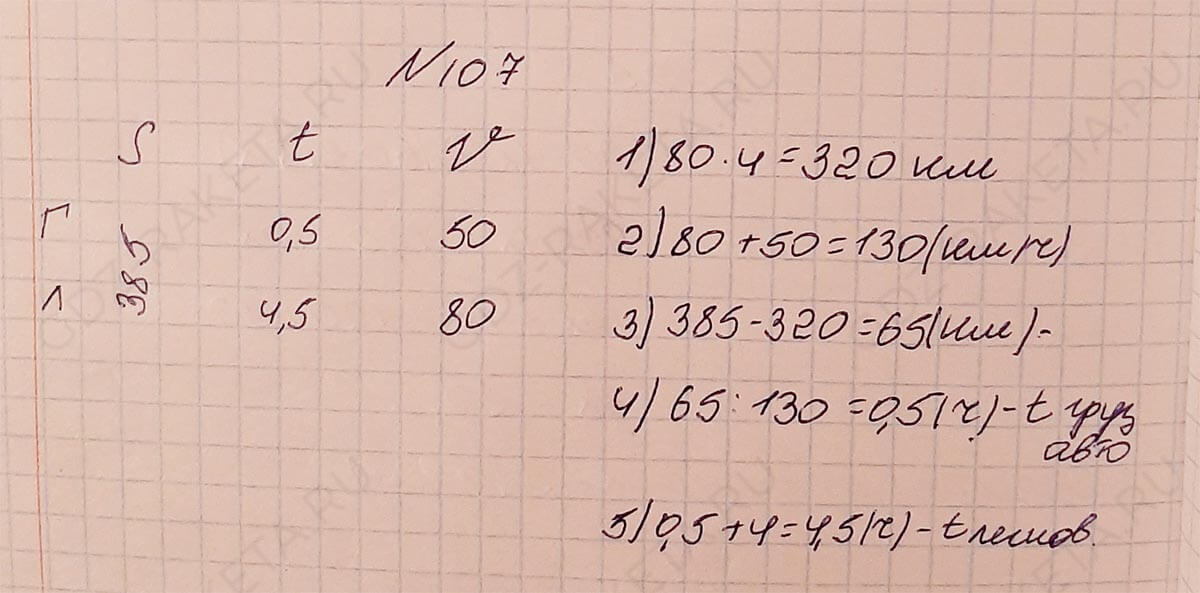 N107
S t V
Г 385 0,5 50
Л 4,5 80
1) 80·4=320 км
2) 80+50=130(км/ч)
3) 385-320=65(км)-
4) 65:130=0,5(ч)-t груз
авто
5) 0,5+4=4,5(ч)-t легков.
GDZ-RAKETA.RU